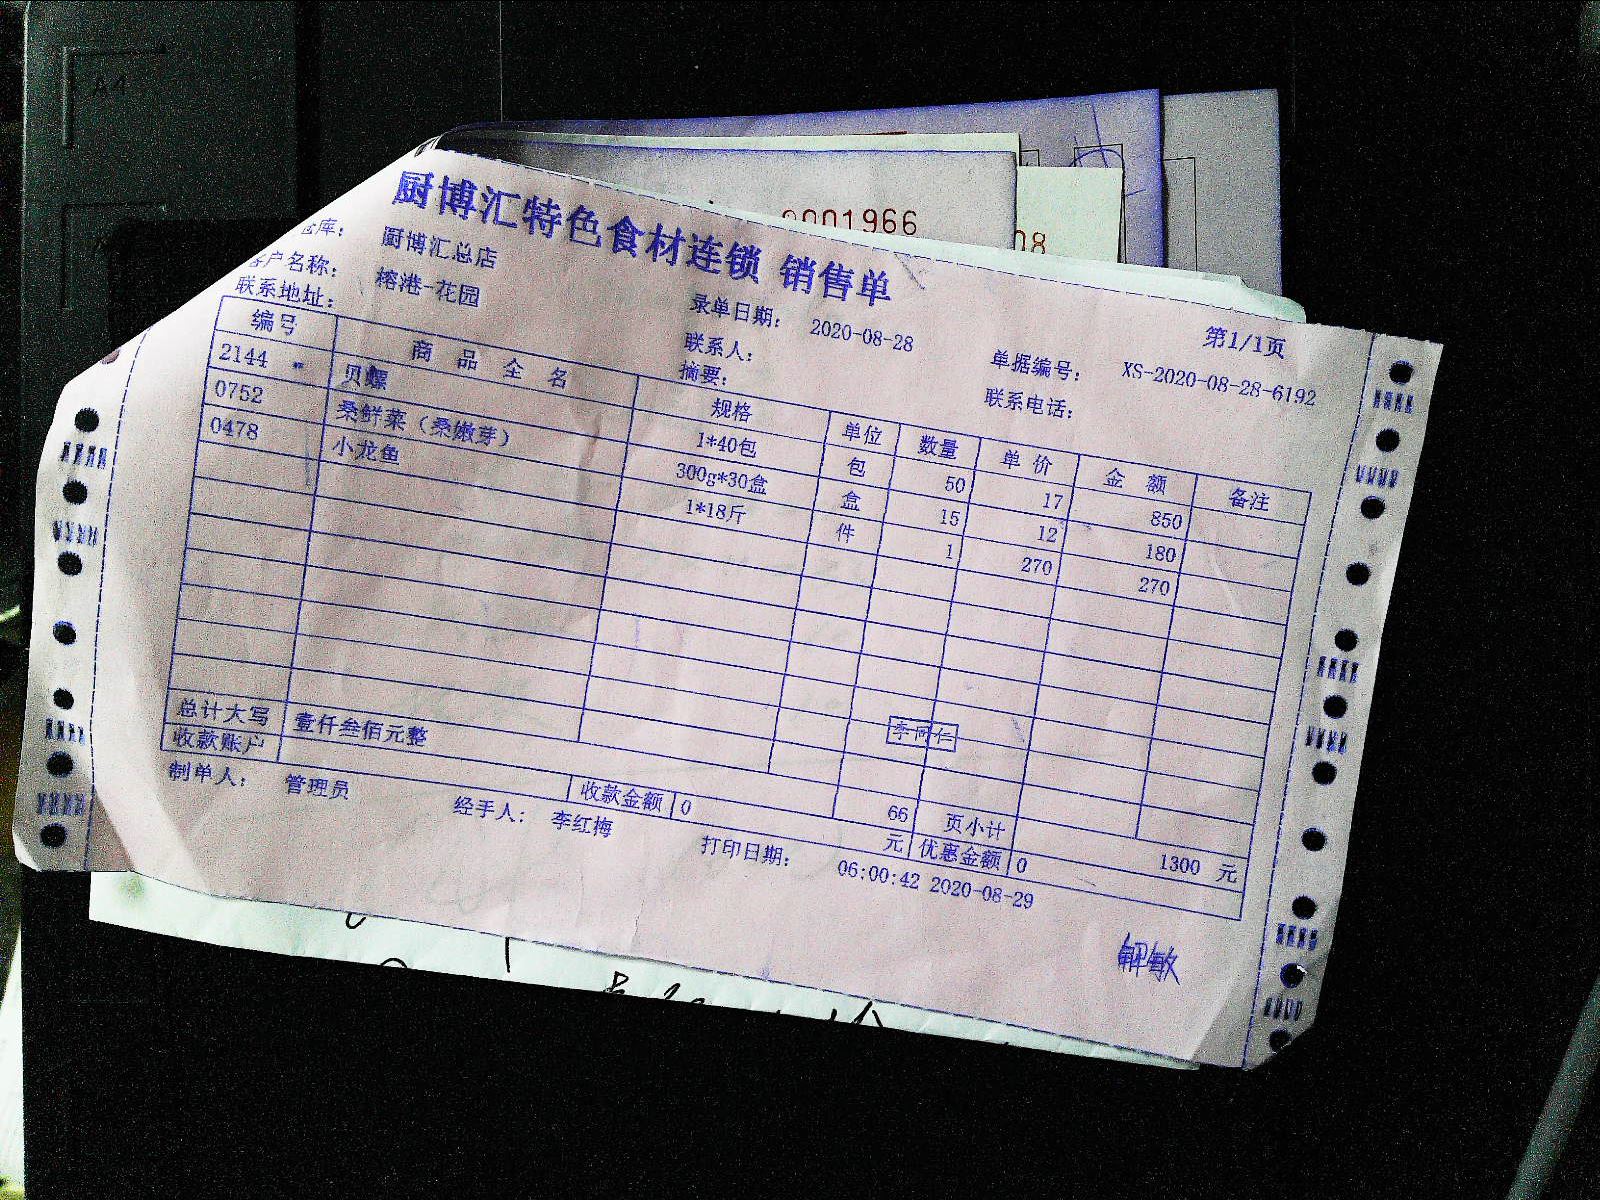 A4
0001966
08
厨博汇特色食材连锁 销售单
仓库： 厨博汇总店 录单日期： 2020-08-28 单据编号： XS-2020-08-28-6192 第1/1页
客户名称： 榕港-花园 联系人： 联系电话：
联系地址： 摘要：
编号 商品全名 规格 单位 数量 单价 金额 备注
2144 * 贝螺 1*40包 包 50 17 850
0752 桑鲜菜（桑嫩芽） 300g*30盒 盒 15 12 180
0478 小龙鱼 1*18斤 件 1 270 270
李同仁
总计大写 壹仟叁佰元整 66 页小计 1300 元
收款账户 收款金额 0 元 优惠金额 0
制单人： 管理员 经手人： 李红梅 打印日期： 06:00:42 2020-08-29
解敏